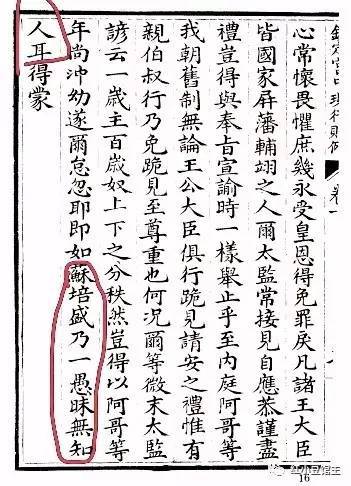 欽定宮中現行則例 卷一
心常懷畏懼庶幾永受皇恩得免罪戾凡諸王大臣
皆國家屏藩輔翊之人爾太監常接見自應恭謹盡
禮豈得與奉旨宣諭時一樣舉止乎至内庭阿哥等
我朝舊制無論王公大臣俱行跪見請安之禮惟有
親伯叔行乃免跪見至尊重也何況爾等微末太監
諺云一歲主百歲奴上下之分秩然豈得以阿哥等
年尚沖幼遂爾怠忽耶即如蘇培盛乃一愚昧無知
人耳得蒙
16
红小豆馆主